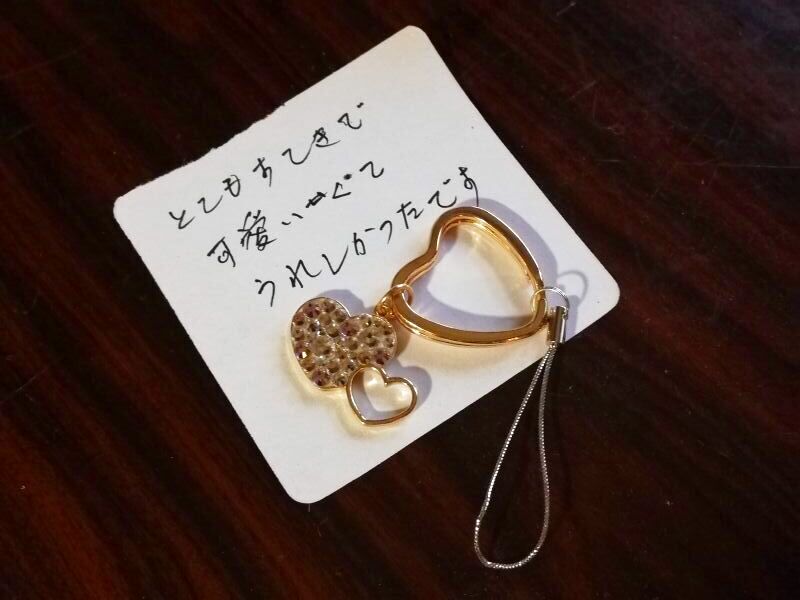 とてもすてきで
可愛いくて
うれしかったです